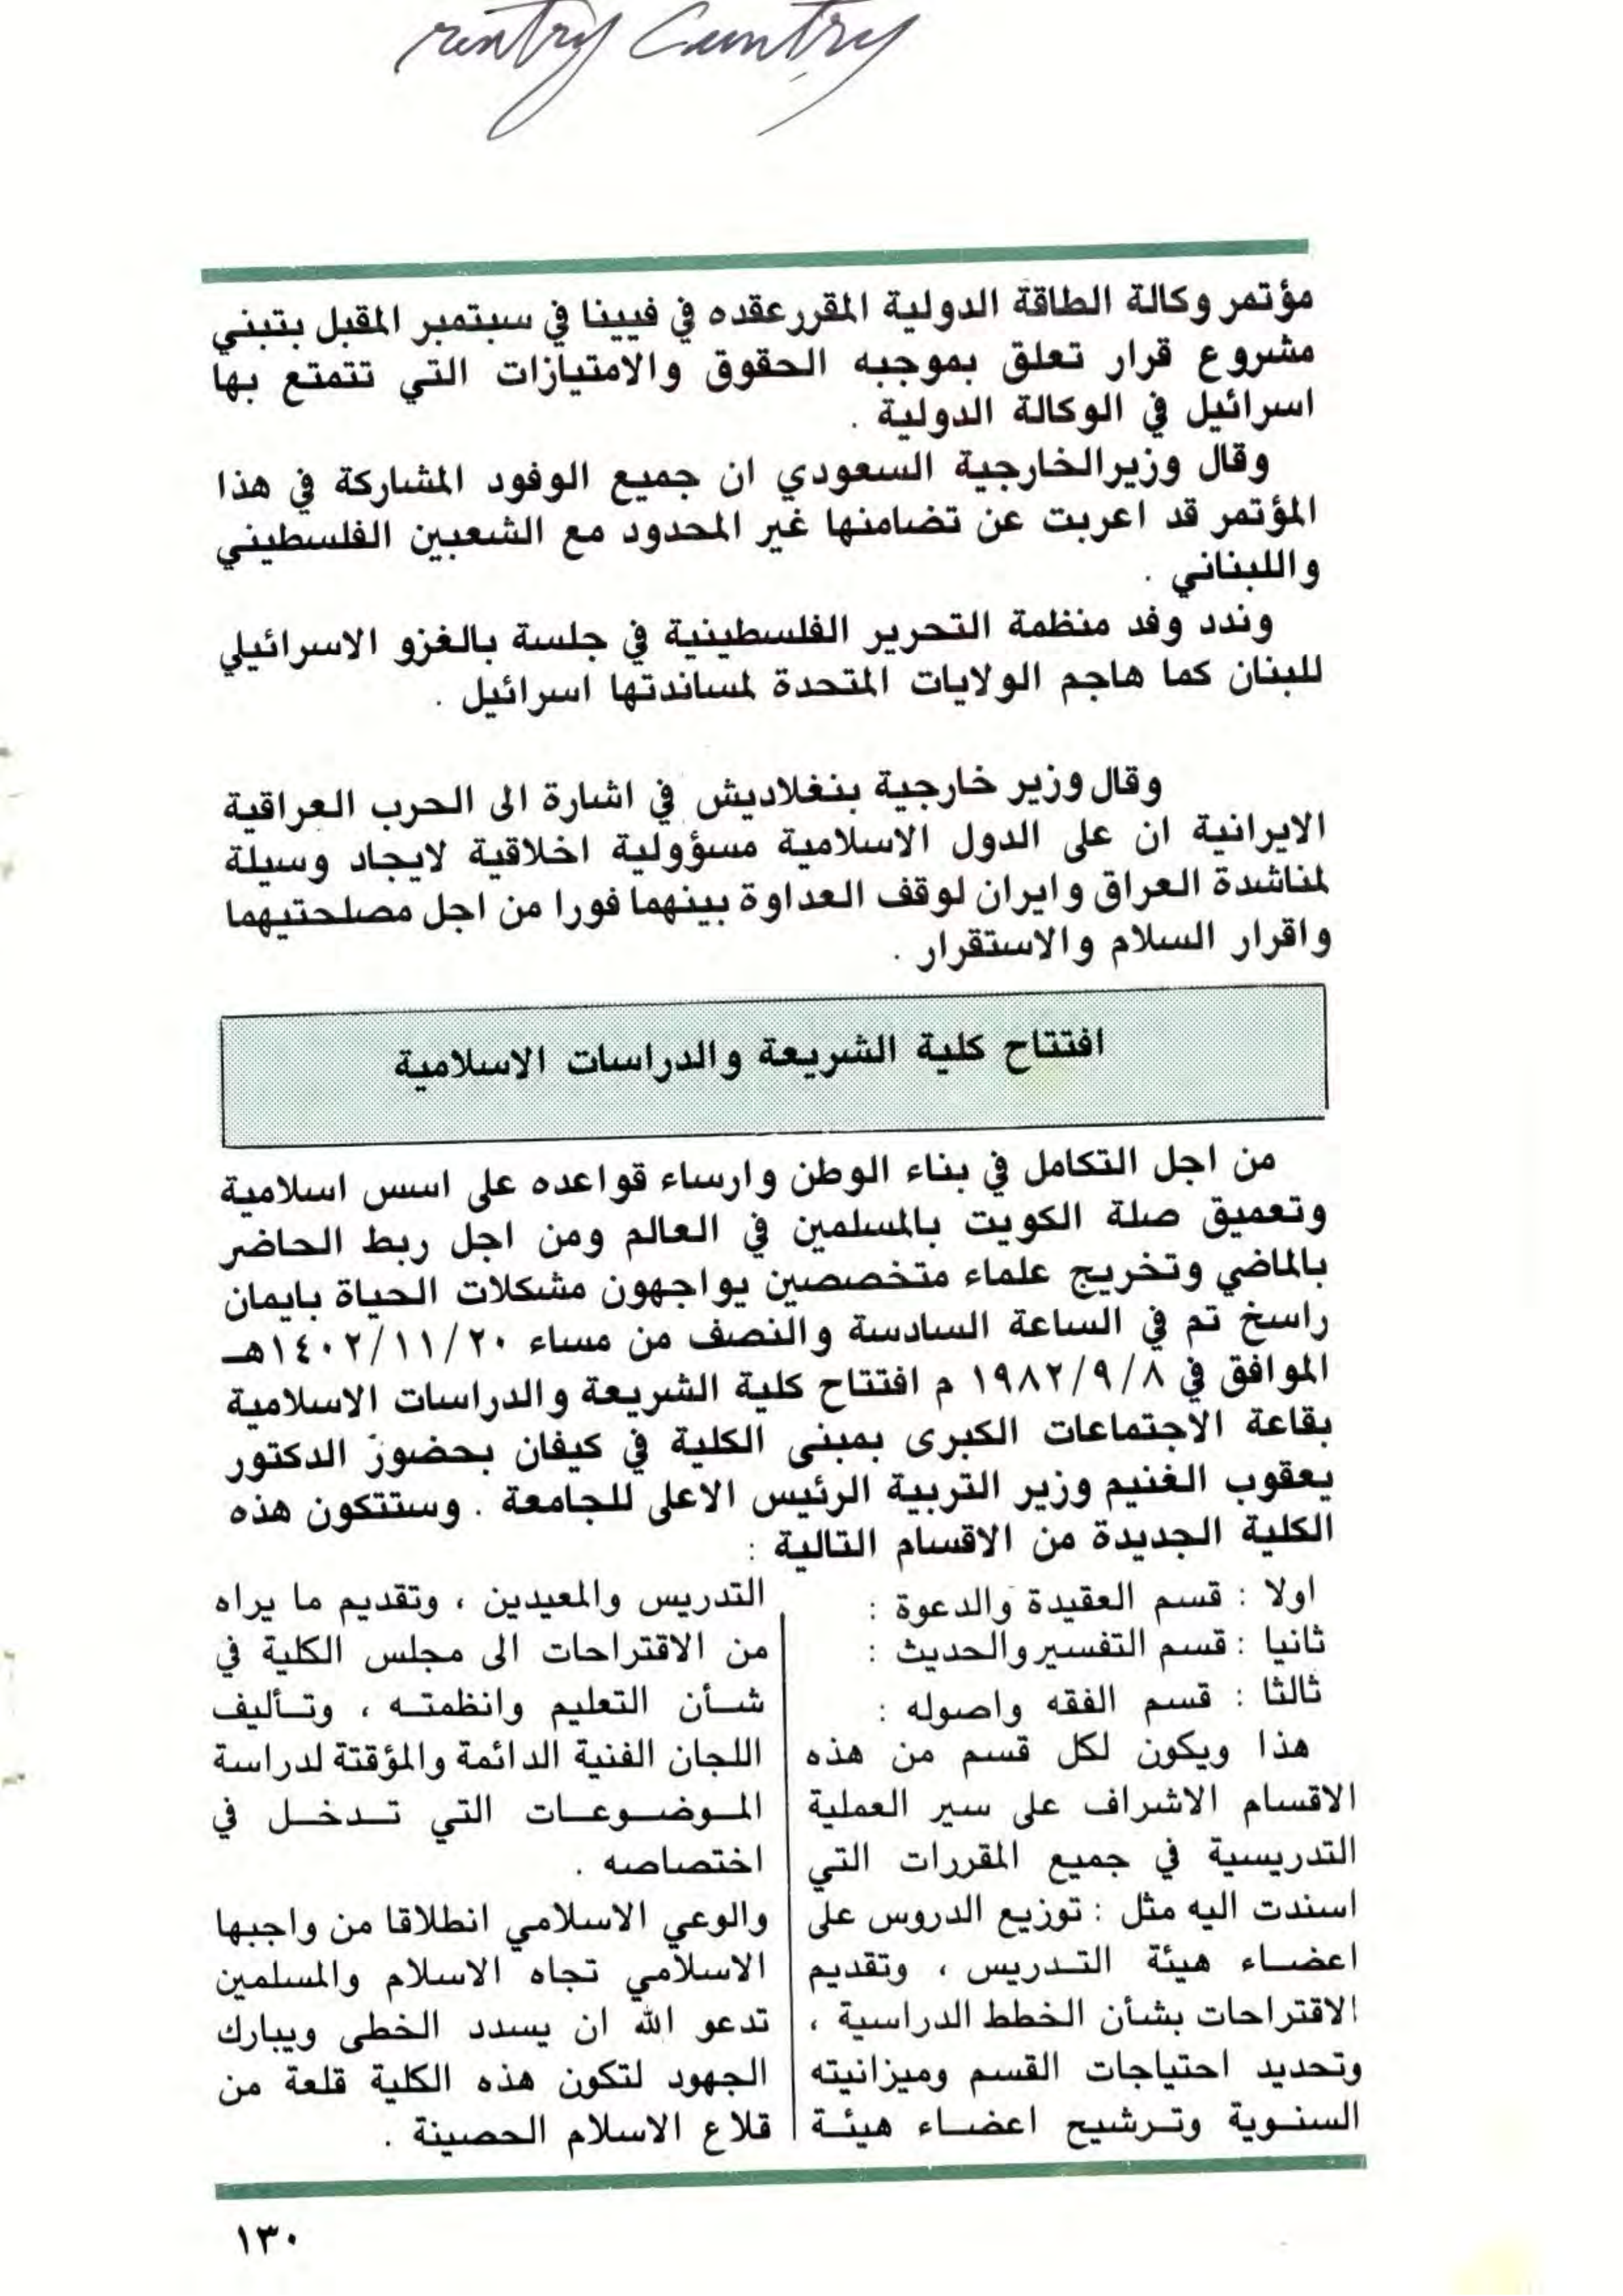 Country
مؤتمر وكالة الطاقة الدولية المقرر عقده في فيينا في سبتمبر المقبل بتبني
مشروع قرار تعلق بموجبه الحقوق والامتيازات التي تتمتع بها
اسرائيل في الوكالة الدولية .
وقال وزير الخارجية السعودي ان جميع الوفود المشاركة في هذا
المؤتمر قد اعربت عن تضامنها غير المحدود مع الشعبين الفلسطيني
واللبناني .
وندد وفد منظمة التحرير الفلسطينية في جلسة بالغزو الاسرائيلي
للبنان كما هاجم الولايات المتحدة لمساندتها اسرائيل .
وقال وزير خارجية بنغلاديش في اشارة الى الحرب العراقية
الايرانية ان على الدول الاسلامية مسؤولية اخلاقية لايجاد وسيلة
لمناشدة العراق وايران لوقف العداوة بينهما فورا من اجل مصلحتيهما
واقرار السلام والاستقرار .
افتتاح كلية الشريعة والدراسات الاسلامية
من اجل التكامل في بناء الوطن وارساء قواعده على اسس اسلامية
وتعميق صلة الكويت بالمسلمين في العالم ومن اجل ربط الحاضر
بالماضي وتخريج علماء متخصصين يواجهون مشكلات الحياة بايمان
راسخ تم في الساعة السادسة والنصف من مساء ١٤٠٢/١١/٢٠هـ
الموافق في ١٩٨٢/٩/٨ م افتتاح كلية الشريعة والدراسات الاسلامية
بقاعة الاجتماعات الكبرى بمبنى الكلية في كيفان بحضور الدكتور
يعقوب الغنيم وزير التربية الرئيس الاعلى للجامعة . وستتكون هذه
الكلية الجديدة من الاقسام التالية :
اولا : قسم العقيدة والدعوة :
ثانيا : قسم التفسير والحديث :
ثالثا : قسم الفقه واصوله :
هذا ويكون لكل قسم من هذه
الاقسام الاشراف على سير العملية
التدريسية في جميع المقررات التي
اسندت اليه مثل : توزيع الدروس على
اعضاء هيئة التدريس ، وتقديم
الاقتراحات بشأن الخطط الدراسية ،
وتحديد احتياجات القسم وميزانيته
السنوية وترشيح اعضاء هيئة
التدريس والمعيدين ، وتقديم ما يراه
من الاقتراحات الى مجلس الكلية في
شأن التعليم وانظمته ، وتأليف
اللجان الفنية الدائمة والمؤقتة لدراسة
الموضوعات التي تدخل في
اختصاصه .
والوعي الاسلامي انطلاقا من واجبها
الاسلامي تجاه الاسلام والمسلمين
تدعو الله ان يسدد الخطى ويبارك
الجهود لتكون هذه الكلية قلعة من
قلاع الاسلام الحصينة .
١٣٠